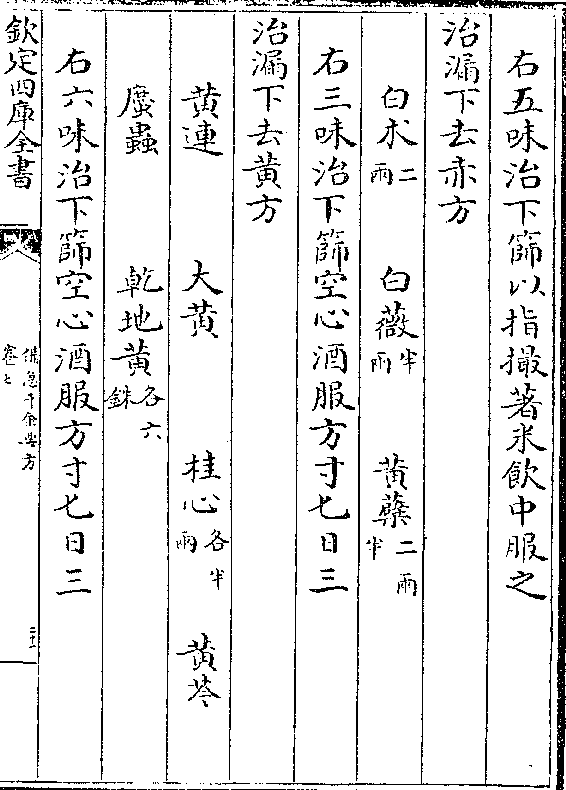 右五味治下篩以指撮著米飲中服之
治漏下去赤方
白朮二兩　白薇半兩　黃蘗二兩半
右三味治下篩空心酒服方寸匕日三
治漏下去黃方
黃連　大黃　桂心各半兩　黃芩
䗪蟲　乾地黃各六銖
右六味治下篩空心酒服方寸匕日三
欽定四庫全書
備急千金要方